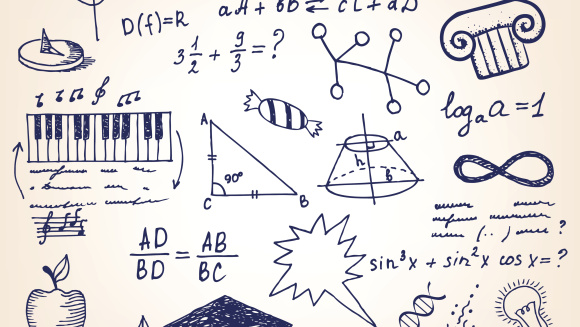 aA + bB ⇌ cC + dD
D(f)=R
3 1/2 + 9/3 = ?
log_a a = 1
A
90°
C
B
a
h
b
AD/BD = AB/BC
(..)
?
sin³x + sin²x cos x = ?